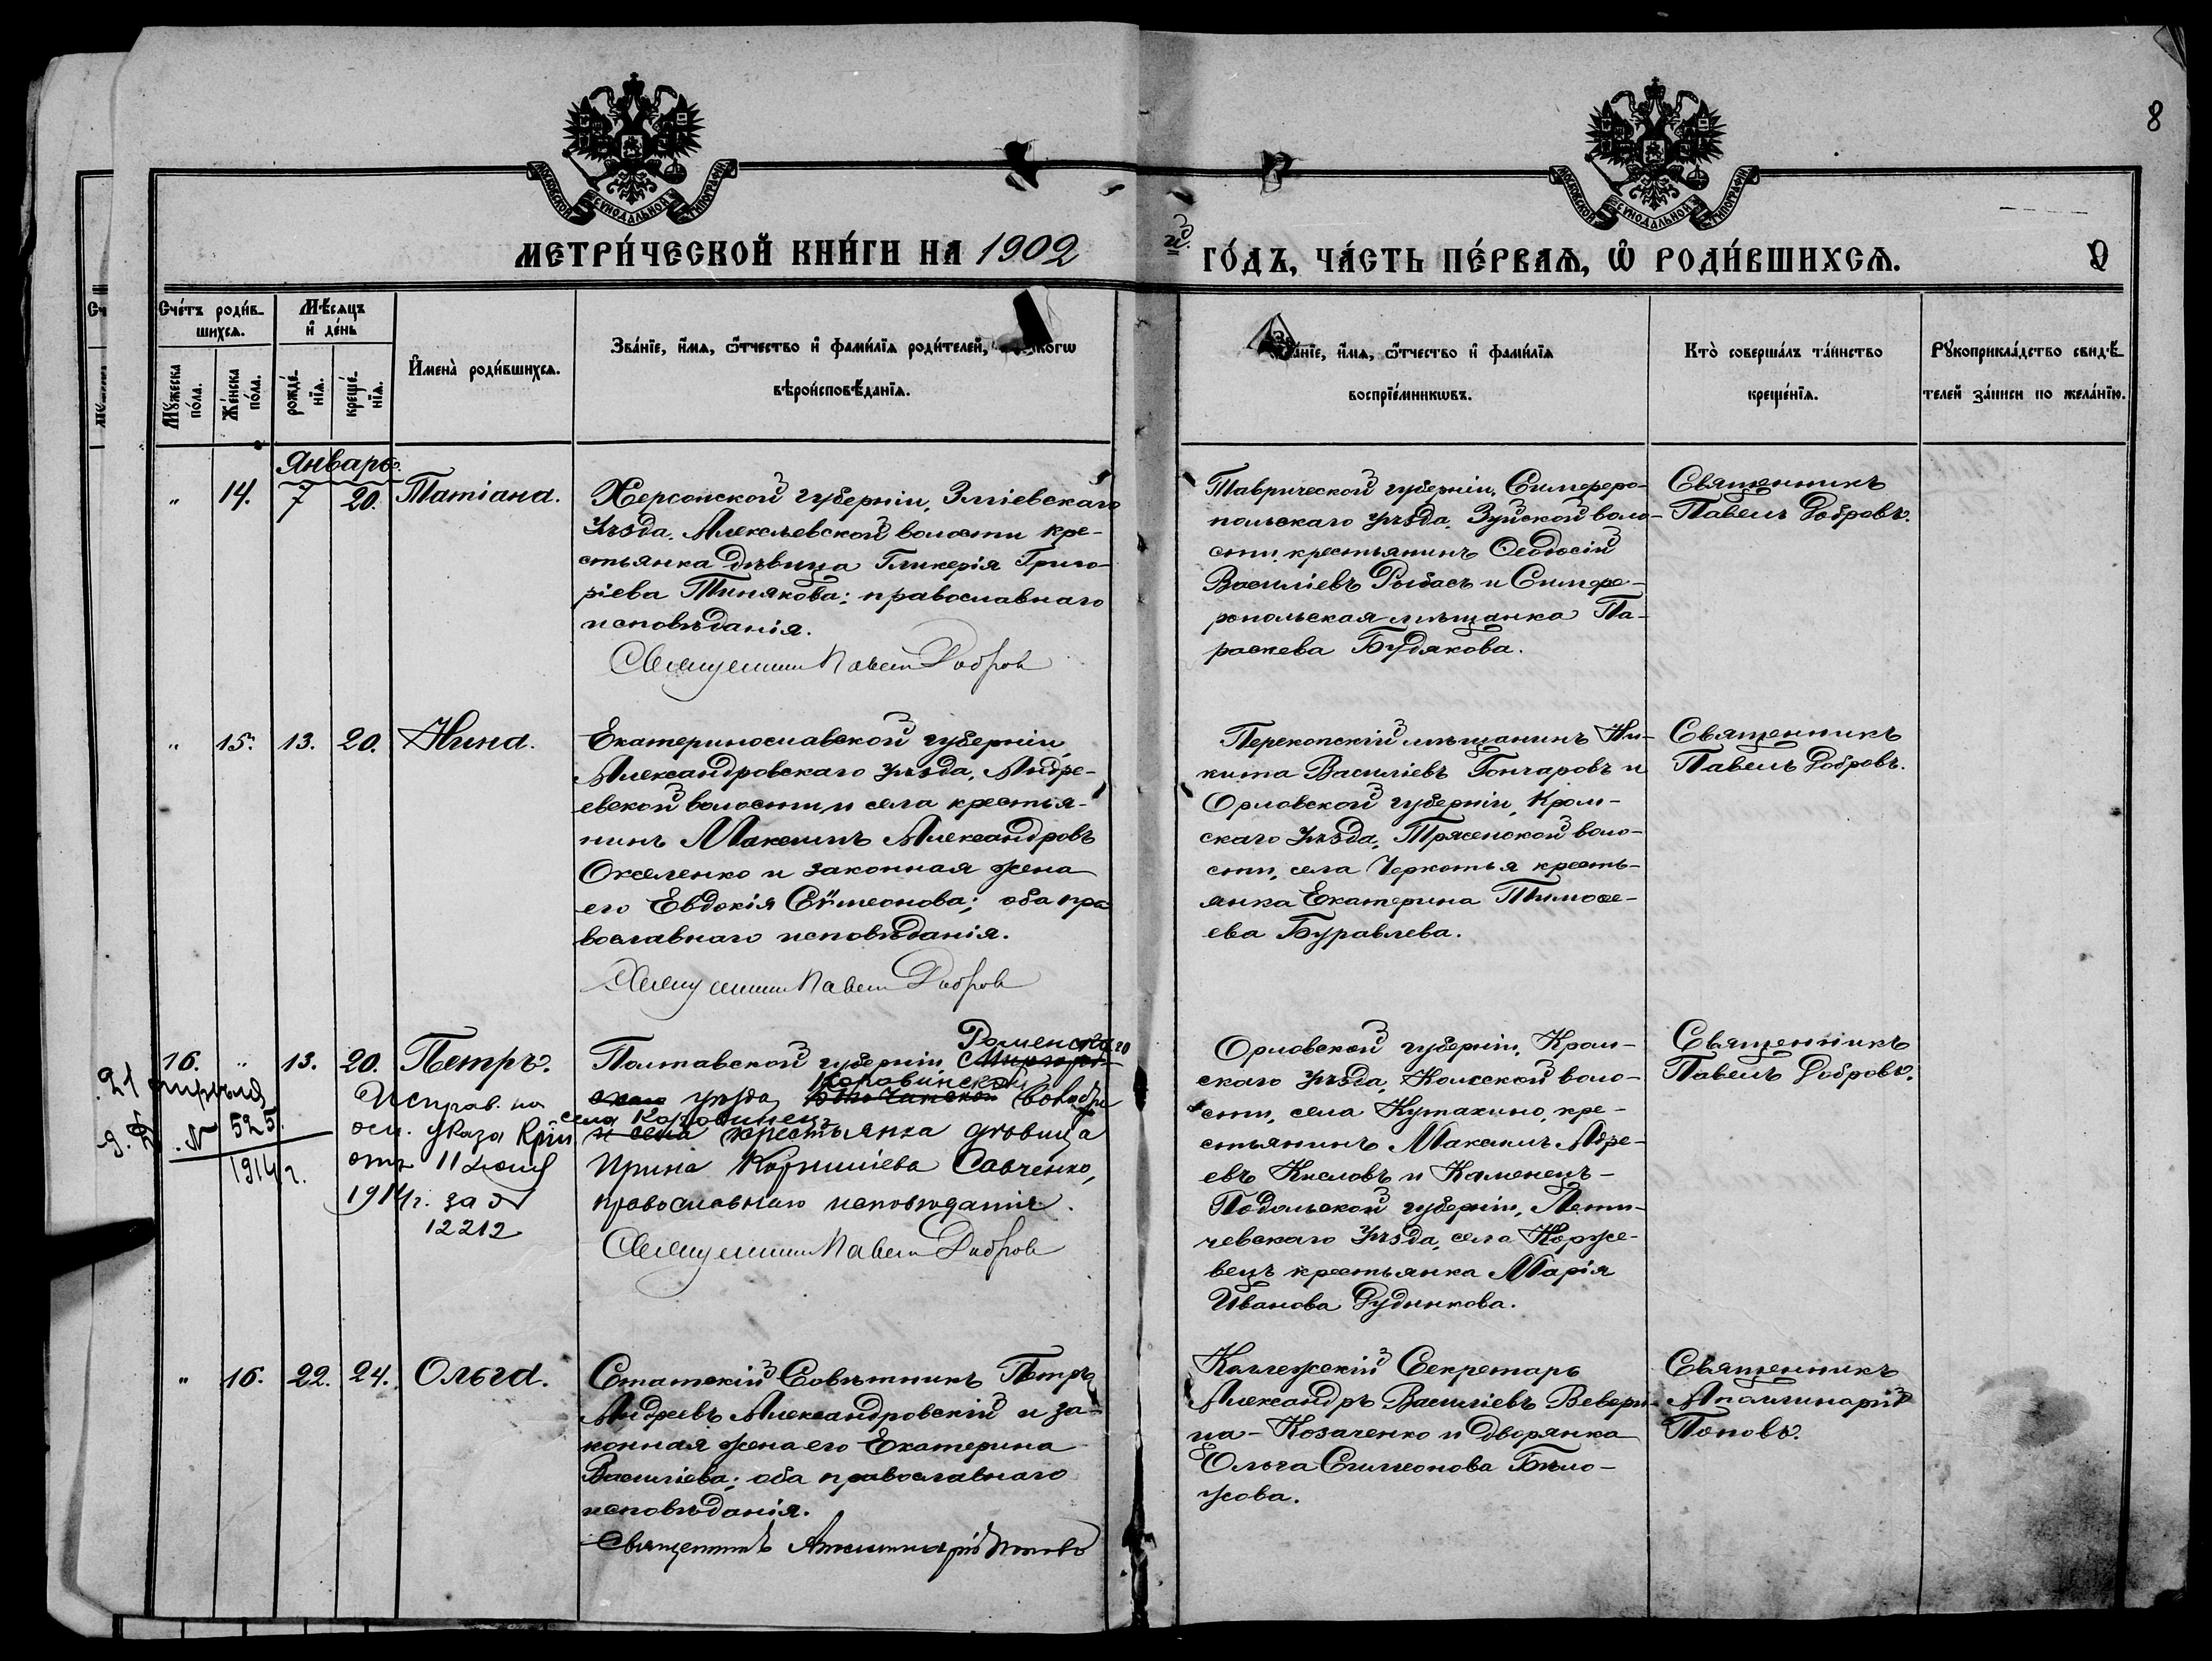 8
МОСКОВСКОЙ СУНОДАЛЬНОЙ ТИПОГРАФІИ
МОСКОВСКОЙ СУНОДАЛЬНОЙ ТИПОГРАФІИ
МЕТРИ́ЧЕСКОЙ КНИ́ГИ НА 1902 й. ГО́ДЪ, ЧА́СТЬ ПЕ́РВАѦ, Ѡ҆ РОДИ́ВШИХСѦ.
Сче́тъ роди́в-
шихсѧ.
Мѣ́сѧцъ
и҆ де́нь
Мꙋ́жеска
по́ла.
Же́нска
по́ла.
рожде́-
нїѧ.
креще́-
нїѧ.
И҆мена̀ роди́вшихсѧ.
Зва́нїе, и҆́мѧ, ѻ҆́тчество и҆ фами́лїѧ роди́телей,
вѣроисповѣ́данїѧ.
и҆́мѧ, ѻ҆́тчество и҆ фами́лїѧ
воспрїе́мникѡвъ.
Кто̀ соверша́лъ та́инство
креще́нїѧ.
Рꙋкоприкла́дство свидѣ́-
телей за́писи по жела́нїю.
Январь.
" 14. 7 20. Татіана.
Херсонской губерніи, Зміевскаго
уѣзда, Алексѣевской волости кре-
стьянка дѣвица Гликерія Григо-
ріева Тинякова; православнаго
исповѣданія.
Священникъ Павелъ Добровъ
Таврической губерніи, Симферо-
польскаго уѣзда, Зуйской воло-
сти, крестьянинъ Ѳеодосій
Василіевъ Рыбасъ и Симфе-
ропольская мѣщанка Па-
раскева Будякова.
Священникъ
Павелъ Добровъ.
" 15. 13. 20. Нина.
Екатеринославской губерніи,
Александровскаго уѣзда, Андре-
евской волости и села крестья-
нинъ Максимъ Александровъ
Окселенко и законная жена
его Евдокія Сѵмеонова; оба пра-
вославнаго исповѣданія.
Священникъ Павелъ Добровъ
Перекопскій мѣщанинъ Ни-
кита Василіевъ Гончаровъ и
Орловской губерніи, Кром-
скаго уѣзда, воло-
сти, села крестъ-
янка Екатерина Тимоѳе-
ева Буравлева.
Священникъ
Павелъ Добровъ.
16. " 13. 20. Петръ.
21 апрѣля
№ 525.
1914 г.
Исправ. на
осн. указа
отъ 11 Іюля
1914 г. за №
12212
Роменскаго
Полтавской губерніи
Коровинской
уѣзда
села Коровинец
и села крестьянка дѣвица
Ирина Корниліева Савченко,
православнаго исповѣданія.
Священникъ Павелъ Добровъ
Орловской губерніи, Кром-
скаго уѣзда, воло-
сти, села Кутахино, кре-
стьянинъ Максимъ Адре-
евъ Кисловъ и Каменецъ-
Подольской губерніи, Лети-
чевскаго уѣзда, села Корже-
вецъ крестьянка Марія
Иванова Рудникова.
Священникъ
Павелъ Добровъ.
" 16. 22. 24. Ольга.
Статскій Совѣтникъ Петръ
Андреевъ Александровскій и за-
конная жена его Екатерина
Василіева; оба православнаго
исповѣданія.
Священникъ Аполлинарій Поповъ
Коллежскій Секретарь
Александръ Василіевъ Вевери-
ца-Козаченко и дворянка
Ольга Симеонова Бѣло-
усова.
Священникъ
Аполлинарій
Поповъ.